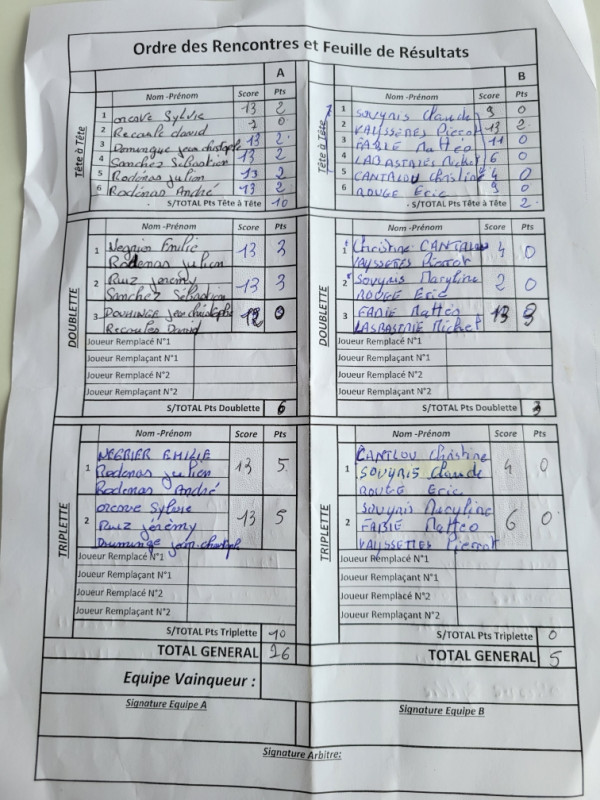 Ordre des Rencontres et Feuille de Résultats
A
B
Nom -Prénom Score Pts
Nom -Prénom Score Pts
Tête à Tête
1 orcove Sylvie 13 2
2 Recoule david 7 0
3 Domingue jean christoph 13 2
4 Sanchez Sébastien 13 2
5 Rodenas julien 13 2
6 Rodénas André 13 2
S/TOTAL Pts Tête à Tête 10
Tête à Tête
1 SOUYRIS Claude 9 0
2 VAYSSETTES Pierrot 13 2
3 FABIE Mattéo 11 0
4 LABASTRIE Michel 6 0
5 CANTALOU Christine 4 0
6 ROUGE Eric 9 0
S/TOTAL Pts Tête à Tête 2
DOUBLETTE
Nom -Prénom Score Pts
1 Negrier Emilie 13 3
Rodenas julien
2 Ruiz jérémy 13 3
Sanchez Sébastien
3 DOUMINGE jean christophe 0
Recoules David
Joueur Remplacé N°1
Joueur Remplaçant N°1
Joueur Remplacé N°2
Joueur Remplaçant N°2
S/TOTAL Pts Doublette 6
DOUBLETTE
Nom -Prénom Score Pts
1 Christine CANTALOU 4 0
VAYSSETES Pierrot
2 SOUYRIS Maryline 2 0
ROUGE Eric
3 FABIE Mattéo 13 3
LASBASTRIE Michel
Joueur Remplacé N°1
Joueur Remplaçant N°1
Joueur Remplacé N°2
Joueur Remplaçant N°2
S/TOTAL Pts Doublette 3
TRIPLETTE
Nom -Prénom Score Pts
1 NEGRIER EMILIE 13 5
Rodenas julien
Rodenas André
2 orcove Sylvie 13 5
Ruiz jérémy
Douminge jean-christoph
Joueur Remplacé N°1
Joueur Remplaçant N°1
Joueur Remplacé N°2
Joueur Remplaçant N°2
S/TOTAL Pts Triplette 10
TOTAL GENERAL 26
TRIPLETTE
Nom -Prénom Score Pts
1 CANTLOU Christine 4 0
SOUYRIS Claude
ROUGE Eric
2 SOUYRIS Maryline 6 0
FABIE Mattéo
VAYSSETTES Pierrot
Joueur Remplacé N°1
Joueur Remplaçant N°1
Joueur Remplacé N°2
Joueur Remplaçant N°2
S/TOTAL Pts Triplette 0
TOTAL GENERAL 5
Equipe Vainqueur :
Signature Equipe A
Signature Equipe B
Signature Arbitre: